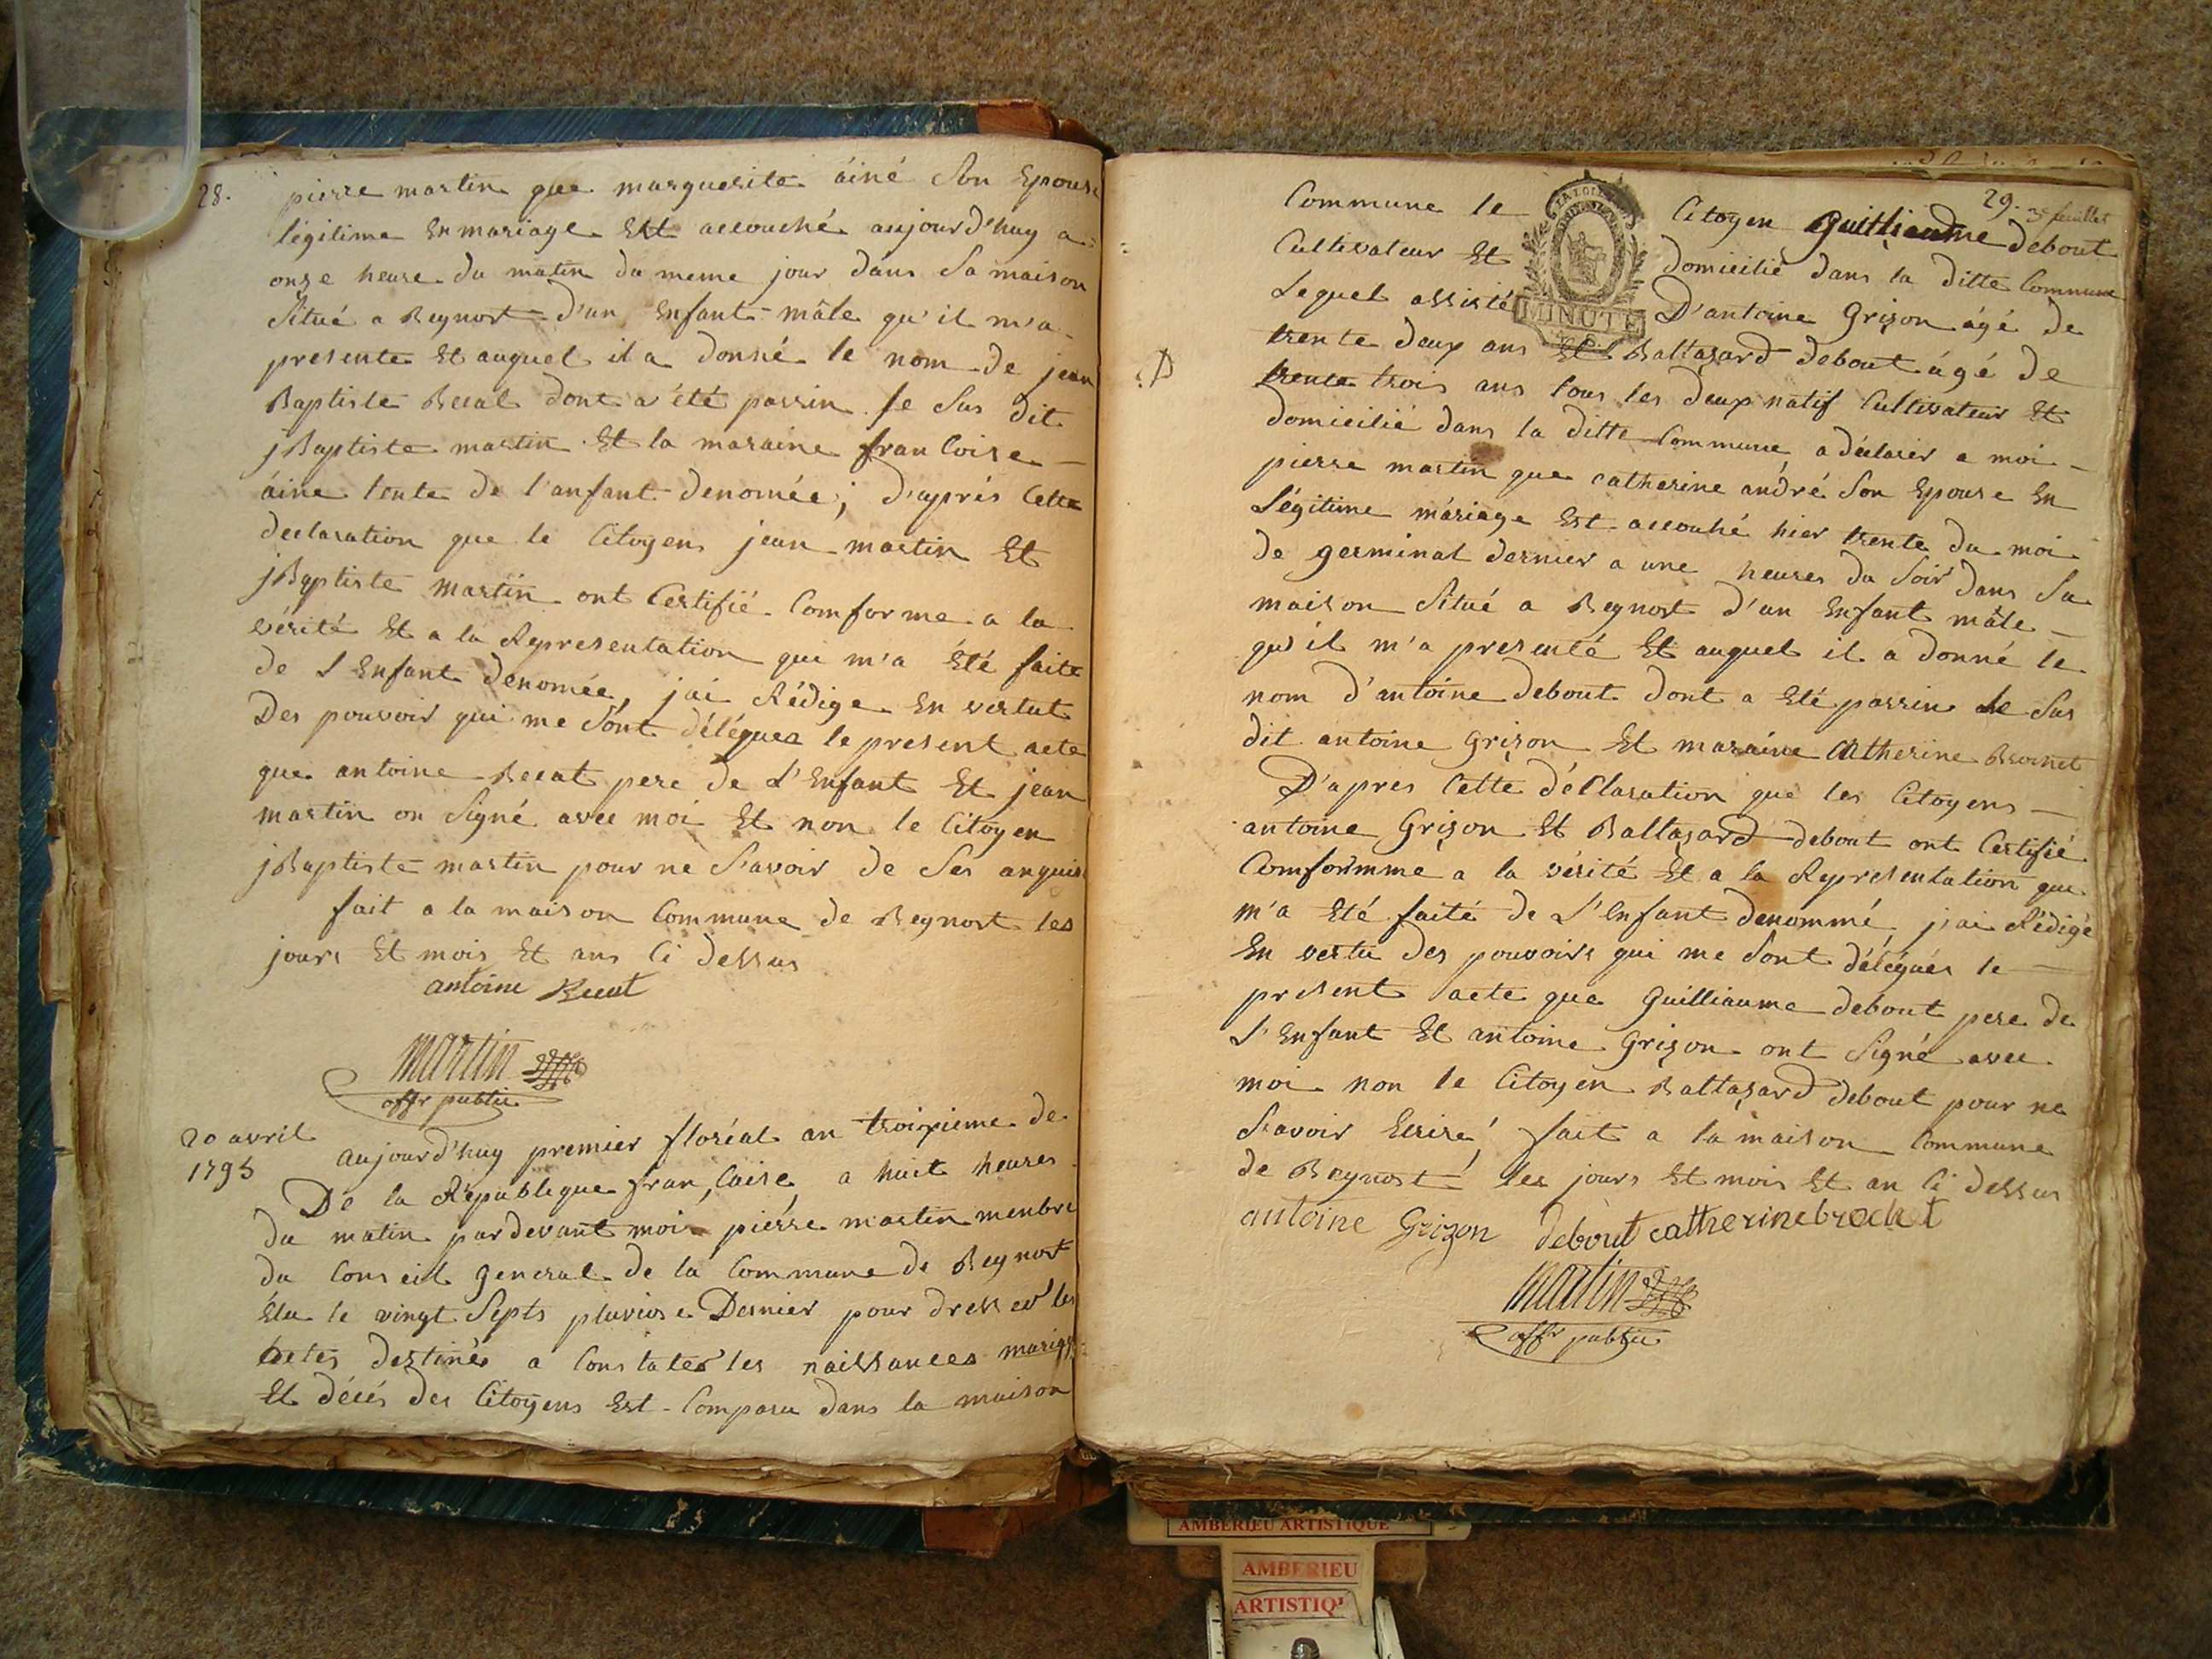 28.
pierre martin que marguerite áiné Son Epouse
légitime En mariage Est accouché aujourd'huy a
onze heure du matin du meme jour dans Sa maison
Situé a Beynost d'un Enfant mâle qu'il m'a
presente Et auquel il a donné le nom de jean
Baptiste Becat dont a été parrin le Sus dit
jBaptiste martin Et la maraine francoise
áine tente de l'anfant denomée; d'aprés Cette
declaration que le Citoyens jean martin Et
jBaptiste martin ont Certifié Comforme a la
vérité Et a la Representation qui m'a Eté faite
de L'Enfant denomée, jai Rédige En vertut
Des pouvoir qui me Sont délégues le present acte
que antoine Becat pere de L'Enfant Et jean
martin on Signé avec moi Et non le Citoyen
jBaptiste martin pour ne Savoir de Ses anquis
fait a la maison Commune de Beynost les
jours Et mois Et ans Ci dessus
antoine Becat
martin
offr public
20 avril
1795
aujourd'huy premier floréal an troixieme de
De la République fran,Caise, a huit heures
du matin pardevant moi pierre martin menbre
du Conseil general de la Commune de Beynost
Élu le vingt Septs pluviose Dernier pour dresser les
actes destinés a Constater les naissances mariag
Et décés des Citoyens Est Comparu dans la maison
29. 3e feuillet
Commune le Citoyen Guilliaume debout
Cultivateur Et domicilié dans la ditte Commune
Lequel assisté D'antoine Grizon ágé de
MINUTE
trente deux ans Et Baltazard debout ágé de
trente trois ans tous les deux natif Cultivateur Et
domicilié dans la ditte Commune a déclarer a moi
pierre martin que catherine andré Son Epouse En
Légitime mariage Est accouhé hier trente du moi
de germinal dernier a une heures du Soir dans Sa
maison Situé a Beynost d'un Enfant mâle
qu'il m'a presenté Et auquel il a donné le
nom d'antoine debout dont a Eté parrin le Sus
dit antoine Grizon Et maraine Catherine
D'apres Cette déClaration que les Citoyens
antoine Grizon Et Baltazard debout ont Certifié
Comformme a la vérité Et a la Representation que
m'a Eté faite de L'Enfant denommé, j'ai Rédigé
En vertu des pouvoirs qui me Sont délégués le
present acte que Guilliaume debout pere de
L'Enfant Et antoine Grizon ont Signé avec
moi non le Citoyen Baltazard debout pour ne
Savoir Ecrire, fait a la maison Commune
de Beynost les jours Et mois Et an Ci dessus
antoine Grizon debout catherine brochet
martin
offr public
AMBERIEU ARTISTIQUE
AMBERIEU
ARTISTIQ